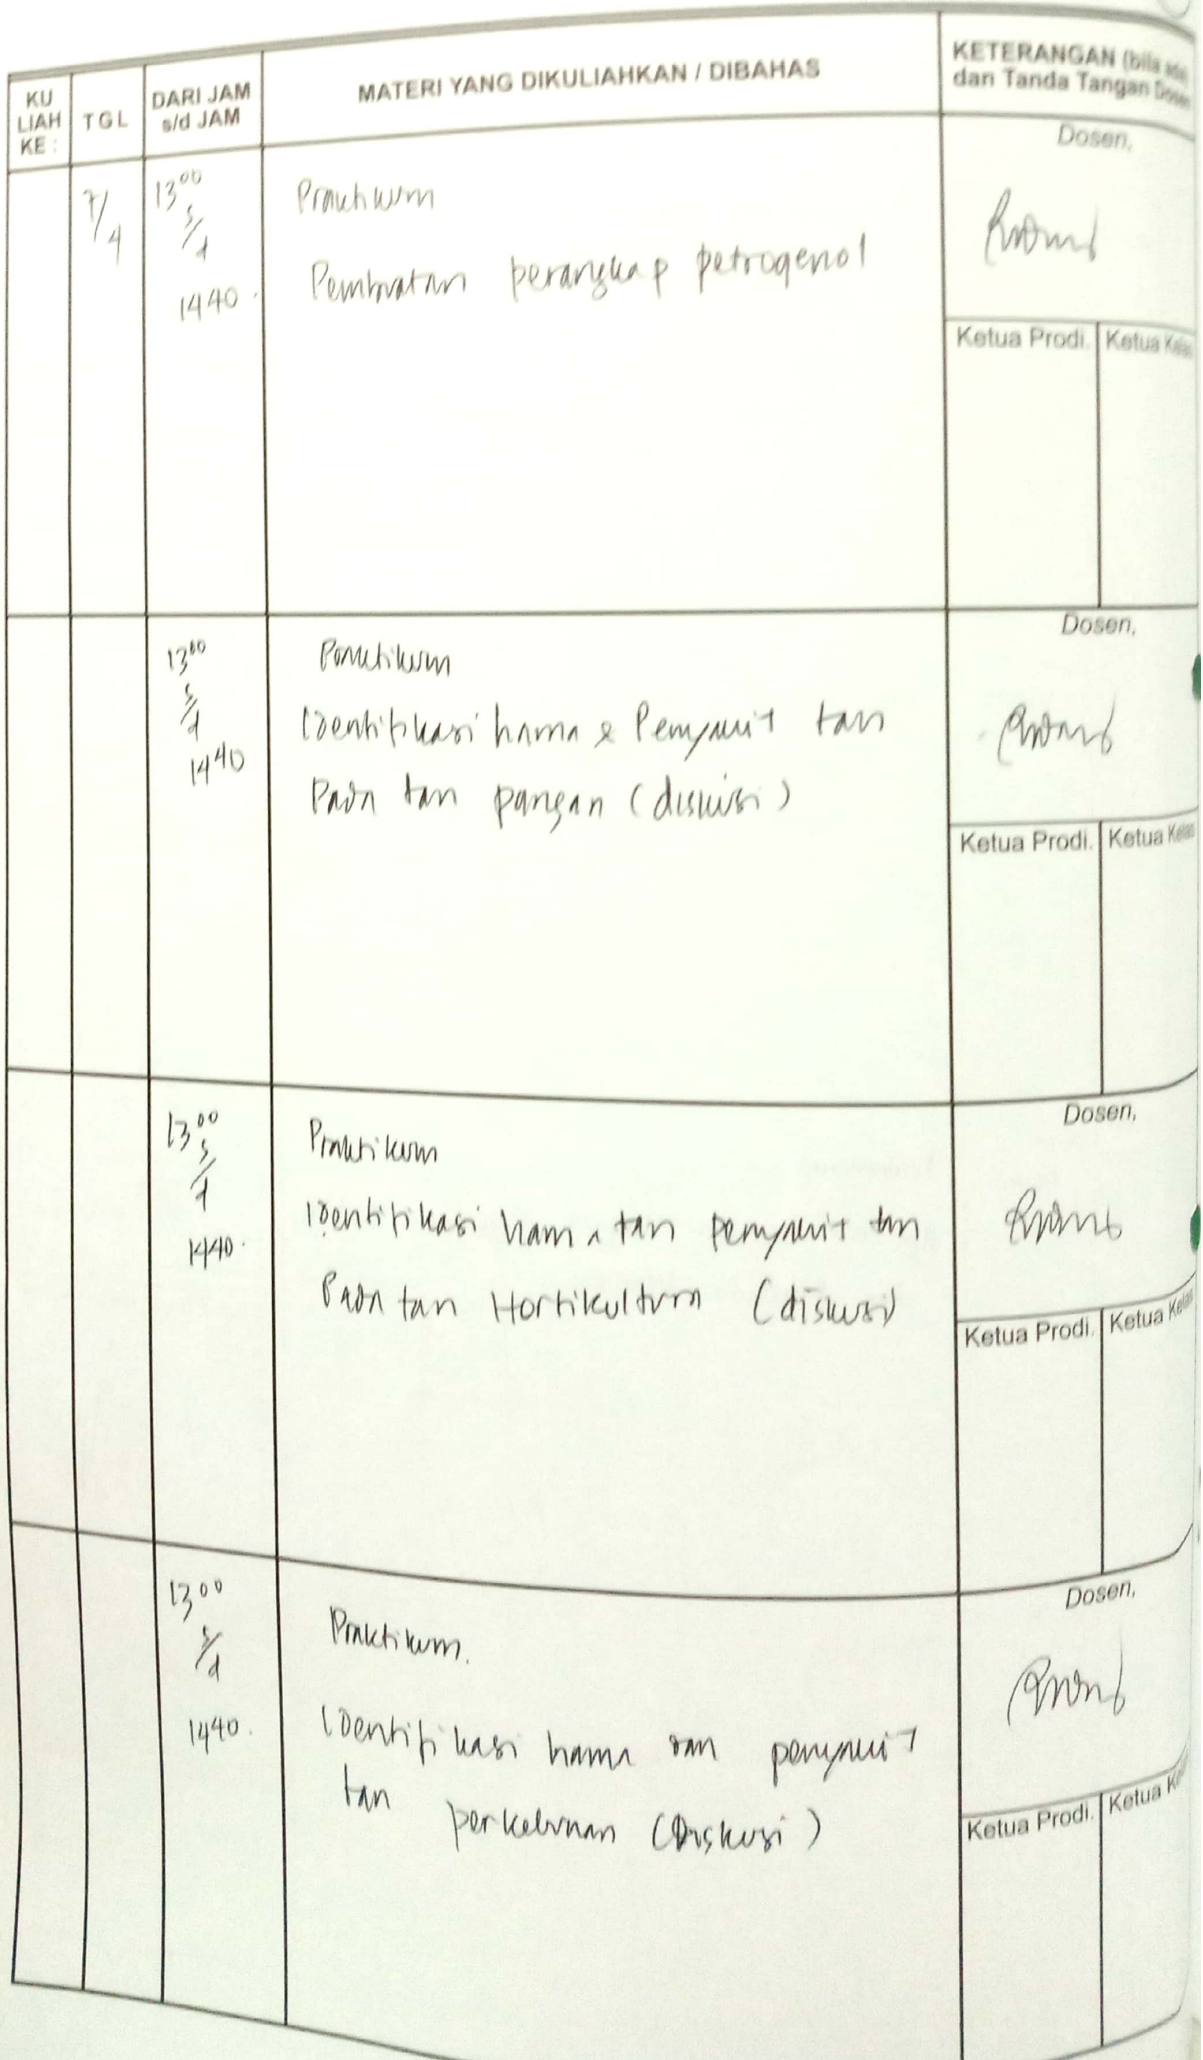 KU
LIAH
KE :
TGL
DARI JAM
s/d JAM
MATERI YANG DIKULIAHKAN / DIBAHAS
KETERANGAN (bila ada
dan Tanda Tangan Dosen
7/4
13 00
s/d
14 40
Praktikum
Pembuatan perangkap petrogenol
Dosen,
Ketua Prodi.
Ketua Kelas
13 00
s/d
14 40
Praktikum
Identifikasi hama & Penyakit tan
Pada tan pangan (diskusi)
Dosen,
Ketua Prodi.
Ketua Kelas
13 00
s/d
14 40
Praktikum
Identifikasi hama tan penyakit tan
Pada tan Hortikultura (diskusi)
Dosen,
Ketua Prodi.
Ketua Kelas
13 00
s/d
14 40
Praktikum.
Identifikasi hama dan penyakit
tan perkebunan (Diskusi)
Dosen,
Ketua Prodi.
Ketua